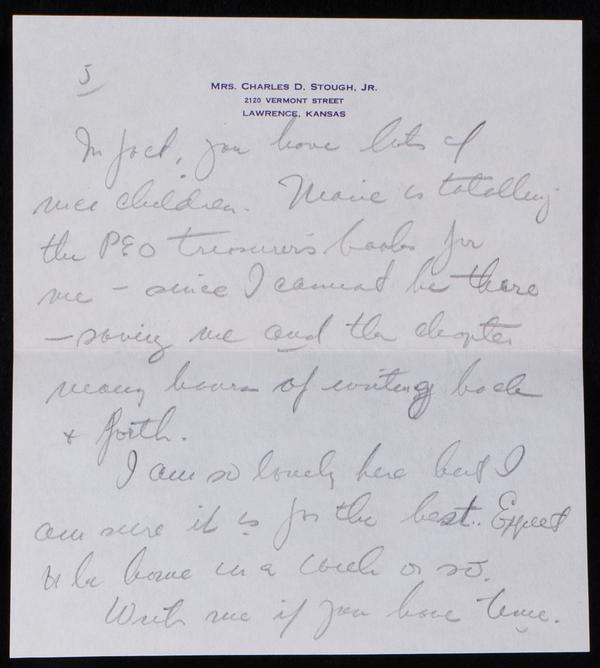 5
MRS. CHARLES D. STOUGH, JR.
2120 VERMONT STREET
LAWRENCE, KANSAS
In fact, you have lots of
nice children. Marie is totalling
the PEO treasurer's books for
me – since I cannot be there
– saving me and the chapter
many hours of writing back
& forth.
I am so lonely here but I
am sure it is for the best. Expect
to be home in a week or so.
Write me if you have time.